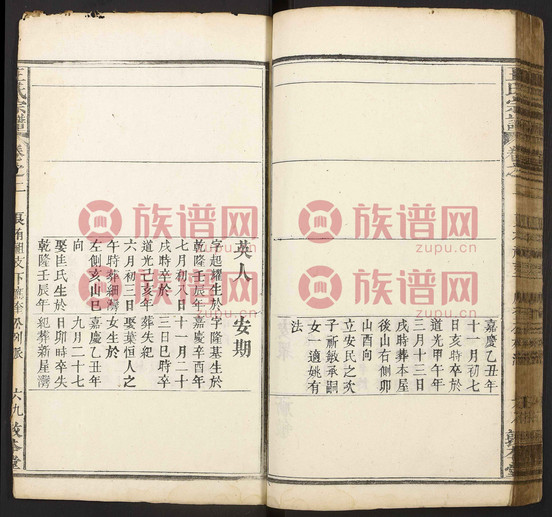 王氏宗譜
卷之
嘉慶乙丑年
十一月初七
日亥時卒於
道光甲午年
三月十三日
戌時葬本屋
後山右側卯
山酉向
立安民之次
子祈敏承嗣
女一適姚有
法
英人
字起耀生於
乾隆壬辰年
七月初八日
戌時卒於
道光己亥年
六月初三日
午時葬細灣
左側亥山巳
向
娶匡氏生於
乾隆壬辰年
安期
字隆基生於
嘉慶辛酉年
十一月二十
三日巳時卒
葬失紀
娶葉恒人之
女生於
嘉慶乙丑年
九月二十七
日卯時卒失
紀葬新屋灣
王氏宗譜
卷之二
六九
族谱网
zupu.cn
族谱网
zupu.cn
族谱网
zupu.cn
族谱网
zupu.cn